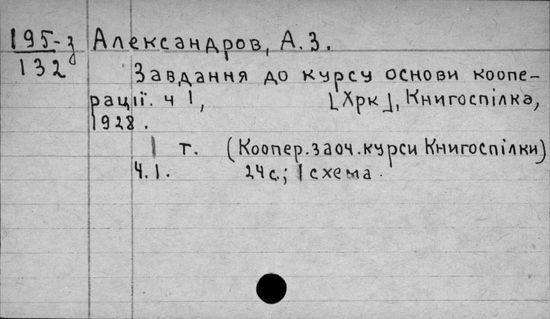 195-з Александров, А.З.
132б
Завдання до курсу основи коопе-
рації. ч 1, [Хрк], Книгоспілка,
1928.
1 т. (Коопер. заоч. курси Книгоспілки)
ч.1. 24с.; 1 схема.